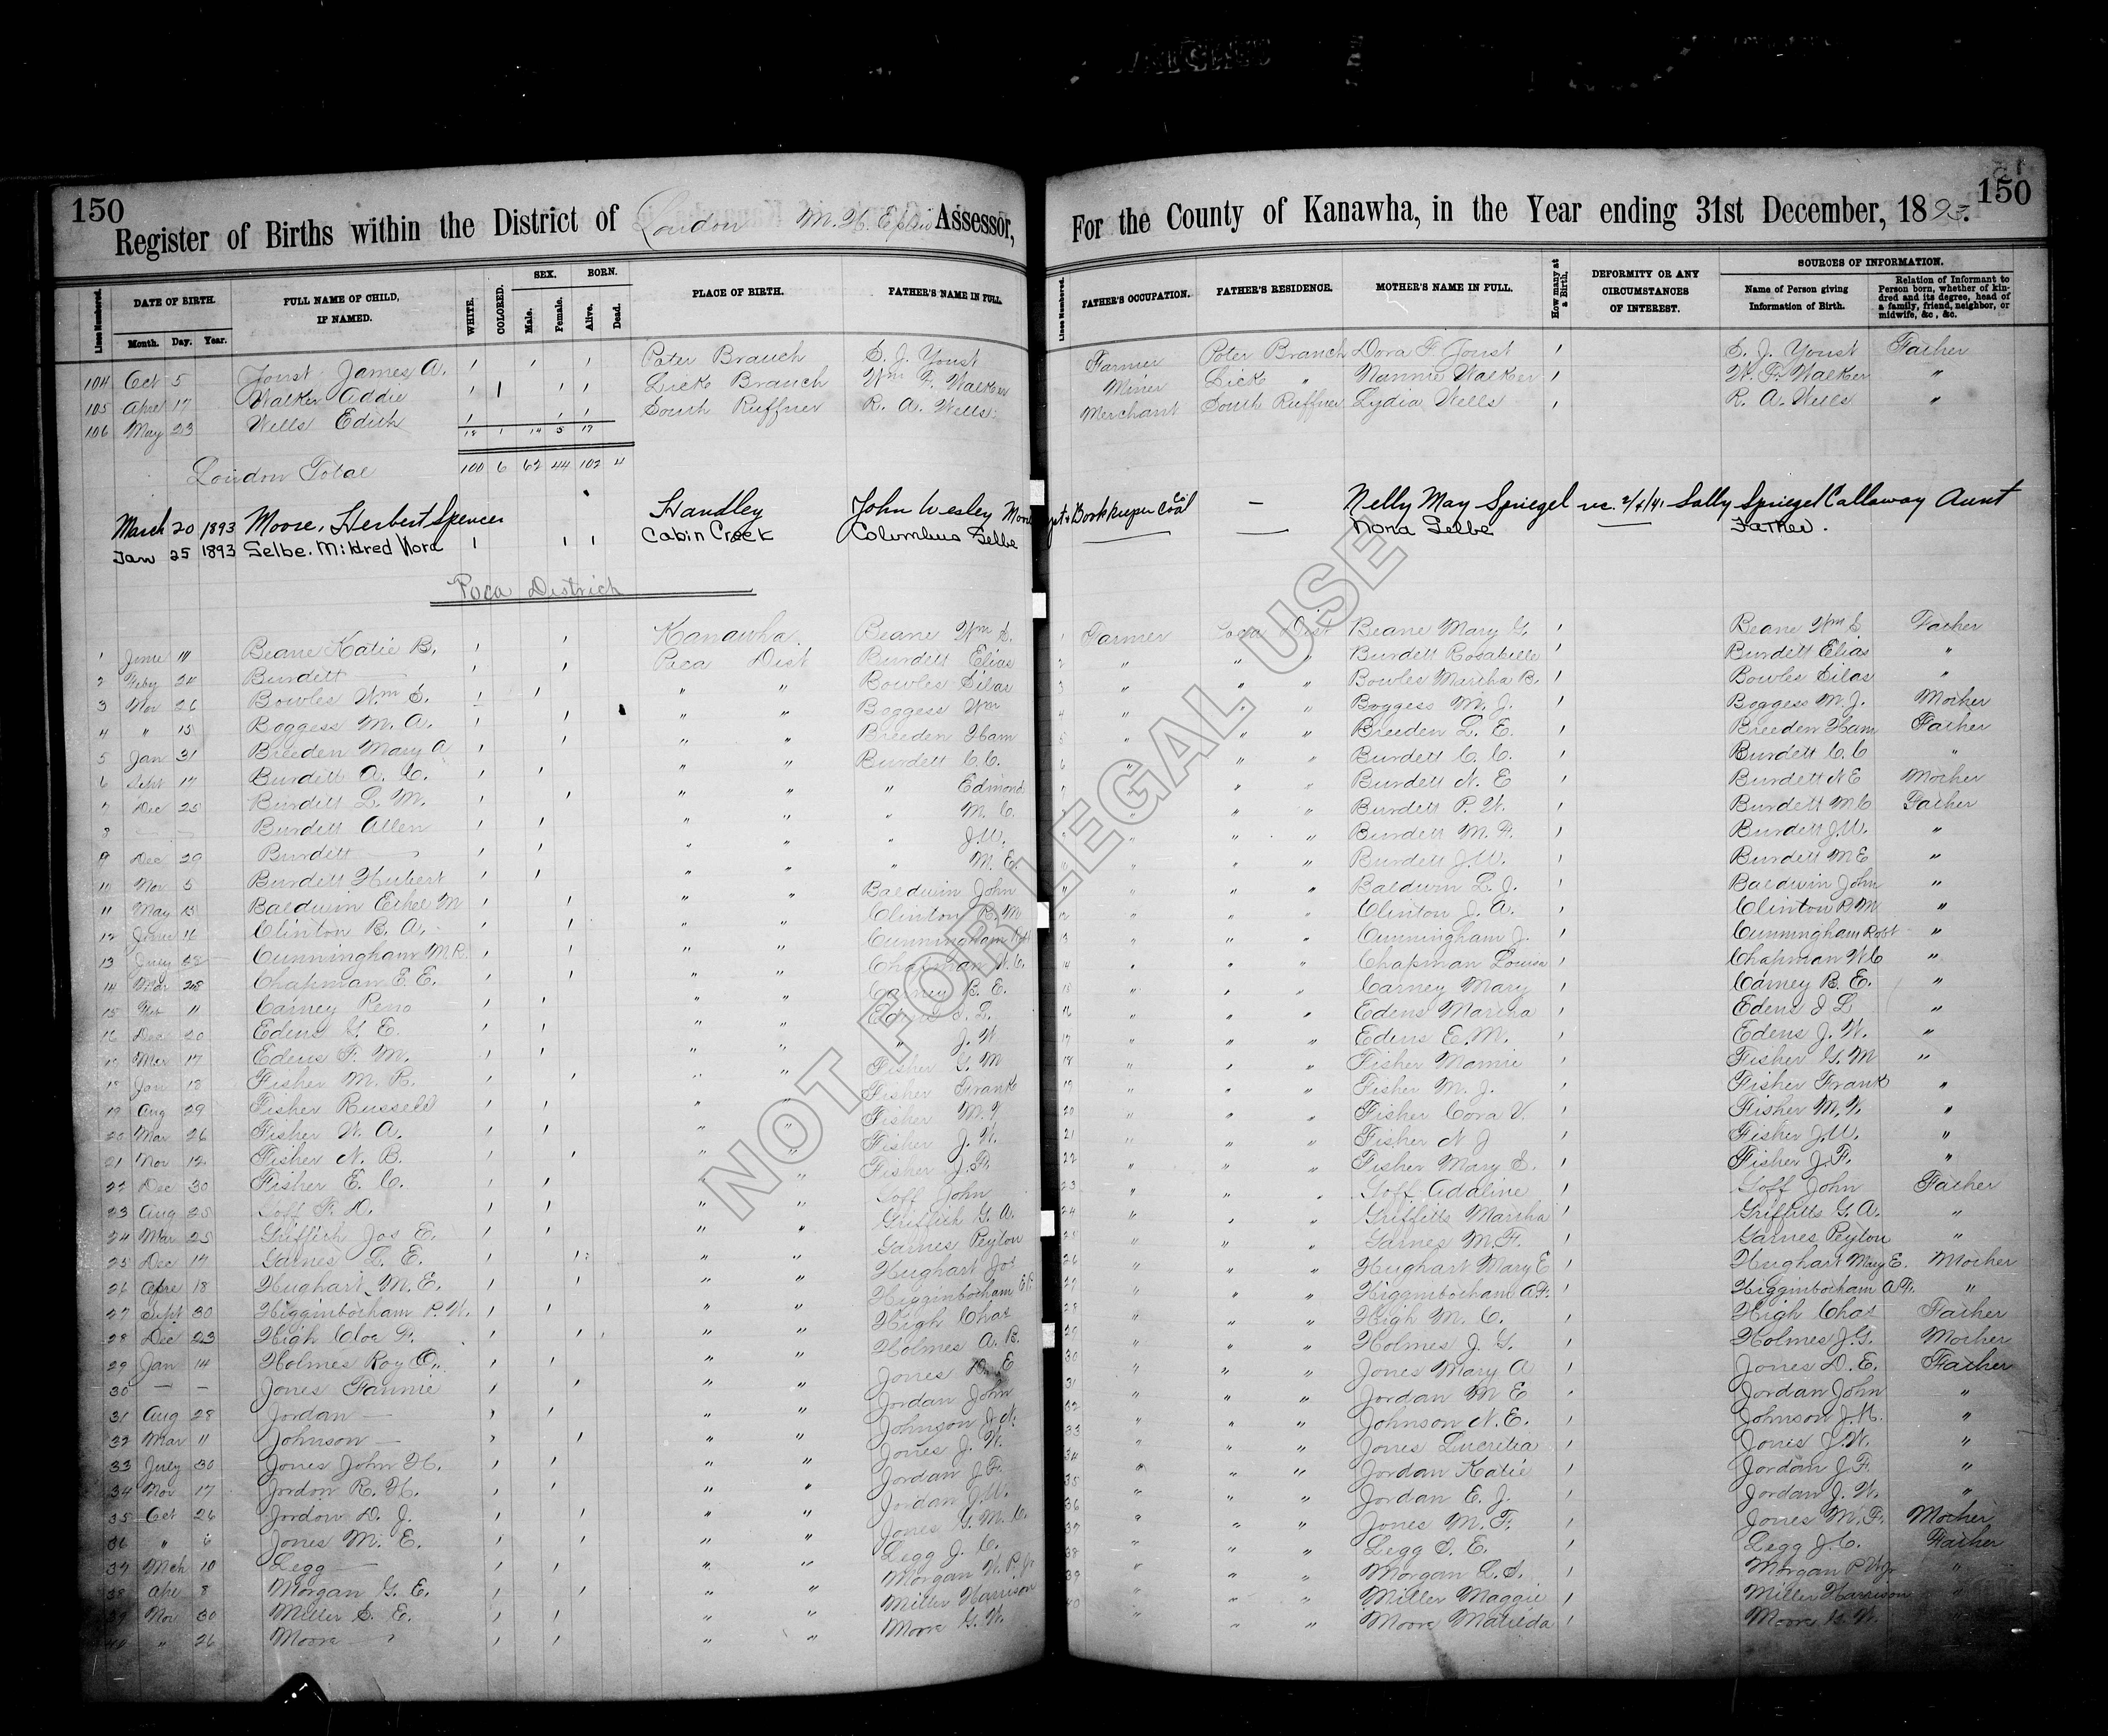 150
Register of Births within the District of London M. H. Assessor,
For the County of Kanawha, in the Year ending 31st December, 1893.
150
Lines Numbered.
DATE OF BIRTH.
Month. Day. Year.
FULL NAME OF CHILD, IF NAMED.
WHITE.
COLORED.
SEX.
Male. Female.
BORN.
Alive. Dead.
PLACE OF BIRTH.
FATHER'S NAME IN FULL.
Lines Numbered.
FATHER'S OCCUPATION.
FATHER'S RESIDENCE.
MOTHER'S NAME IN FULL.
How many at a Birth.
DEFORMITY OR ANY CIRCUMSTANCES OF INTEREST.
SOURCES OF INFORMATION.
Name of Person giving Information of Birth.
Relation of Informant to Person born, whether of kindred and its degree, head of a family, friend, neighbor, or midwife, &c, &c.
104 Oct 5 Joust James A. 1 1 1 Poter Branch S. J. Youst Farmer Poter Branch Dora F Joust 1 S. J. Youst Father
105 Apre 17 Walker Addie 1 1 1 1 Lick Branch Wm F. Walker Miner Lick " Nannie Walker 1 W. F. Walker "
106 May 23 Wells Edith 1 1 1 South Ruffner R. A. Wells Merchant South Ruffner Lydia Wells 1 R. A. Wells "
18 1 14 5 19
London Total 100 6 62 44 102 4
March 20 1893 Moore, Herbert Spencer Handley John Wesley Moore Bookkeeper Coal Co — Nelly May Spiegel Sally Spiegel Callaway Aunt
Jan 25 1893 Selbe. Mildred Nora 1 1 1 Cabin Creek Columbus Selbe — — Nona Selbe Father.
Poca District
1 June Beane Katie B. 1 1 Kanawha Beane Wm S. 1 Farmer Poca Dist Beane Mary G. 1 Beane Wm S Father
2 Feby 24 Burdett — 1 1 Poca Dist Burdett Elias 2 " " " Burdett Rosabelle 1 Burdett Elias "
3 Nov 26 Bowles Wm S. 1 1 " " Bowles Silas 3 " " " Bowles Martha B. 1 Bowles Silas "
4 " 15 Boggess M. A. 1 1 " " Boggess Wm 4 " " " Boggess M. J. 1 Boggess M. J. Mother
5 Jan 31 Breeden Mary A 1 1 " " Breeden Ham 5 " " " Breeden L. E. 1 Breeden Ham Father
6 Sept 17 Burdett A. C. 1 1 " " Burdett C. C. 6 " " " Burdett C. C. 1 Burdett C. C "
7 Dec 25 Burdett L. M. 1 1 " " " Edmond " " " Burdett N. E 1 Burdett N E Mother
8 — — Burdett Allen 1 1 " " " M. C. " " " Burdett P. W. 1 Burdett M C Father
9 Dec 20 Burdett — 1 1 " " " J. W. " " " Burdett M. F. 1 Burdett J. W. "
10 Nov 5 Burdett Hubert 1 1 " " " M. E. 10 " " " Burdett J. W. 1 Burdett M E "
11 May 13 Baldwin Ethel M 1 1 " " Baldwin John 11 " " " Baldwin L. J. 1 Baldwin John "
12 June Clinton B. A. 1 1 " " Clinton B. M 12 " " " Clinton J. A. 1 Clinton B M "
13 July 28 Cunningham M. R. 1 1 " " Cunningham Robt 13 " " " Cunningham J. 1 Cunningham Robt "
14 Mar 28 Chapman E. E. 1 1 " " Chapman W. C. 14 " " " Chapman Louisa 1 Chapman W C "
15 Feb 11 Carney Reno 1 1 " " Carney B. E. 15 " " " Carney Mary 1 Carney B. E. "
16 Dec 20 Edens G. E. 1 1 " " Edens L. 16 " " " Edens Martha 1 Edens L "
17 Mar 17 Edens F. M. 1 1 " " " J. W 17 " " " Edens E. M. 1 Edens J. W. "
18 Jan 18 Fisher M. B. 1 1 " " Fisher G. M 18 " " " Fisher Mamie 1 Fisher G. M "
19 Aug 29 Fisher Russell 1 1 " " Fisher Frank 19 " " " Fisher M. J. 1 Fisher Frank "
20 Mar 26 Fisher W. A. 1 1 " " Fisher M. 20 " " " Fisher Cora V. 1 Fisher M. "
21 Nov 12 Fisher N. B. 1 1 " " Fisher J. W. 21 " " " Fisher N J 1 Fisher J. W. "
22 Dec 30 Fisher E. C. 1 1 " " Fisher J. F. 22 " " " Fisher Mary S. 1 Fisher J. F. "
23 Aug 25 Goff F. D. 1 1 " " Goff John 23 " " " Goff Adaline 1 Goff John Father
24 Mar 25 Griffith Jos E. 1 1 " " Griffith G. A. 24 " " " Griffitts Martha 1 Griffitts G. A. "
25 Dec 17 Garnes L. E. 1 1 " " Garnes Peyton 25 " " " Garnes M. F. 1 Garnes Peyton "
26 Apre 18 Hughart M. E. 1 1 " " Hughart Jos 26 " " " Hughart Mary E 1 Hughart Mary E. Mother
27 Sept 30 Higginbotham P. W. 1 1 " " Higginbotham 27 " " " Higginbotham A F. 1 Higginbotham A F. "
28 Dec 23 High Cloe F. 1 1 " " High Chas 28 " " " High M. C. 1 High Chas Father
29 Jan 14 Holmes Roy O. 1 1 " " Holmes A. B. 29 " " " Holmes J. G. 1 Holmes J. G. Mother
30 — — Jones Fannie 1 1 " " Jones D. E 30 " " " Jones Mary A 1 Jones D. E. Father
31 Aug 28 Jordan — 1 1 " " Jordan John 31 " " " Jordan M E 1 Jordan John "
32 Mar 11 Johnson — 1 1 " " Johnson J. N. 32 " " " Johnson N. E. 1 Johnson J. N. "
33 July 30 Jones John H. 1 1 " " Jones J. W. 33 " " " Jones Lucretia 1 Jones J. W. "
34 Nov 17 Jordon R. H. 1 1 " " Jordan J. F. 34 " " " Jordan Katie 1 Jordan J. F. "
35 Oct 26 Jordon D. J. 1 1 " " Jordan J. W. 35 " " " Jordan E. J. 1 Jordan J. W. "
36 " 6 Jones M. E. 1 1 " " Jones G. M. C. 36 " " " Jones M. F. 1 Jones M. F. Mother
37 Mch 10 Legg — 1 1 " " Legg J. C. 37 " " " Legg S. E. 1 Legg J. C. Father
38 Apr 8 Morgan G. E. 1 1 " " Morgan W. P. Jr 38 " " " Morgan L. S. 1 Morgan P W Jr "
39 Nov 30 Miller S. E. 1 1 " " Miller Harrison 39 " " " Miller Maggie 1 Miller Harrison "
40 " 26 Moore — 1 1 " " Moore G. W. 40 " " " Moore Matilda 1 Moore G. W. "
NOT FOR LEGAL USE